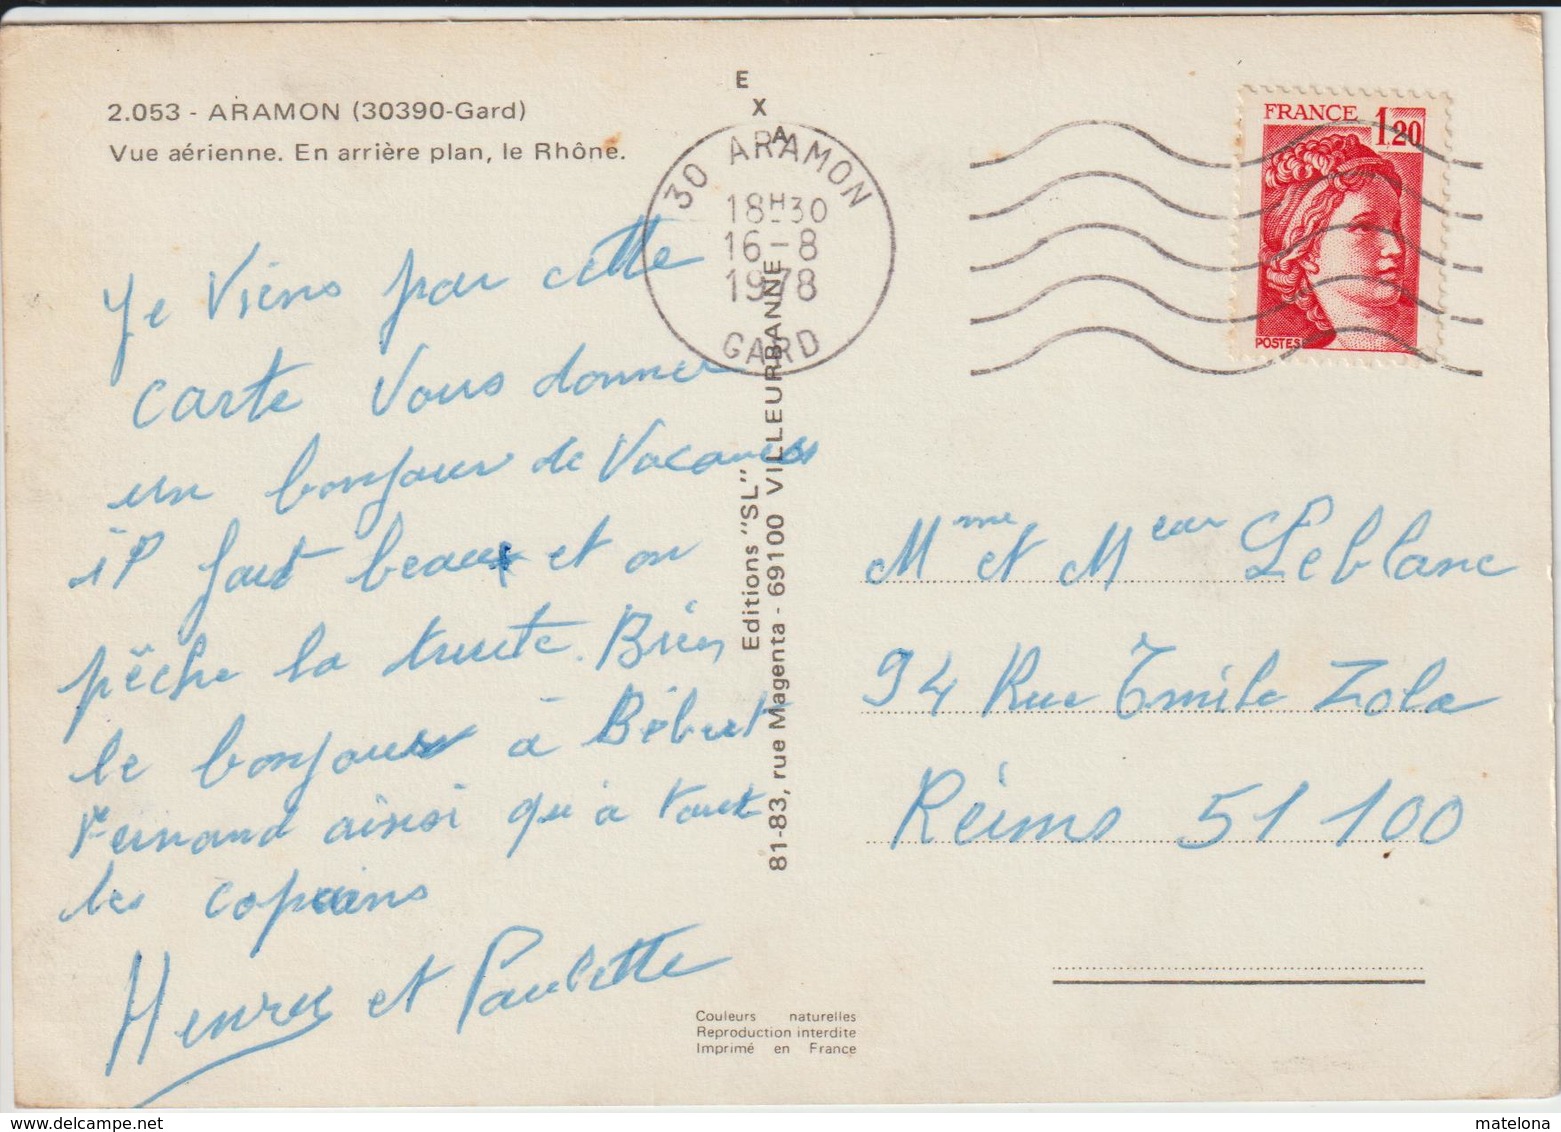 2.053 - ARAMON (30390-Gard)
Vue aérienne. En arrière plan, le Rhône.
EXA
30 ARAMON
18H30
16-8
1978
GARD
FRANCE 1,20
POSTES
Je Viens par cette
carte Vous donner
un bonjour de Vacances
il fait beau et on
pêche la truite. Bien
le bonjour à Bébert
Fernand ainsi qu'à tout
les copains
Henry et Paulette
Editions "SL"
81-83, rue Magenta - 69100 VILLEURBANNE
Mme et Meur Leblanc
94 Rue Emile Zola
Réims 51 100
Couleurs naturelles
Reproduction interdite
Imprimé en France
matelona